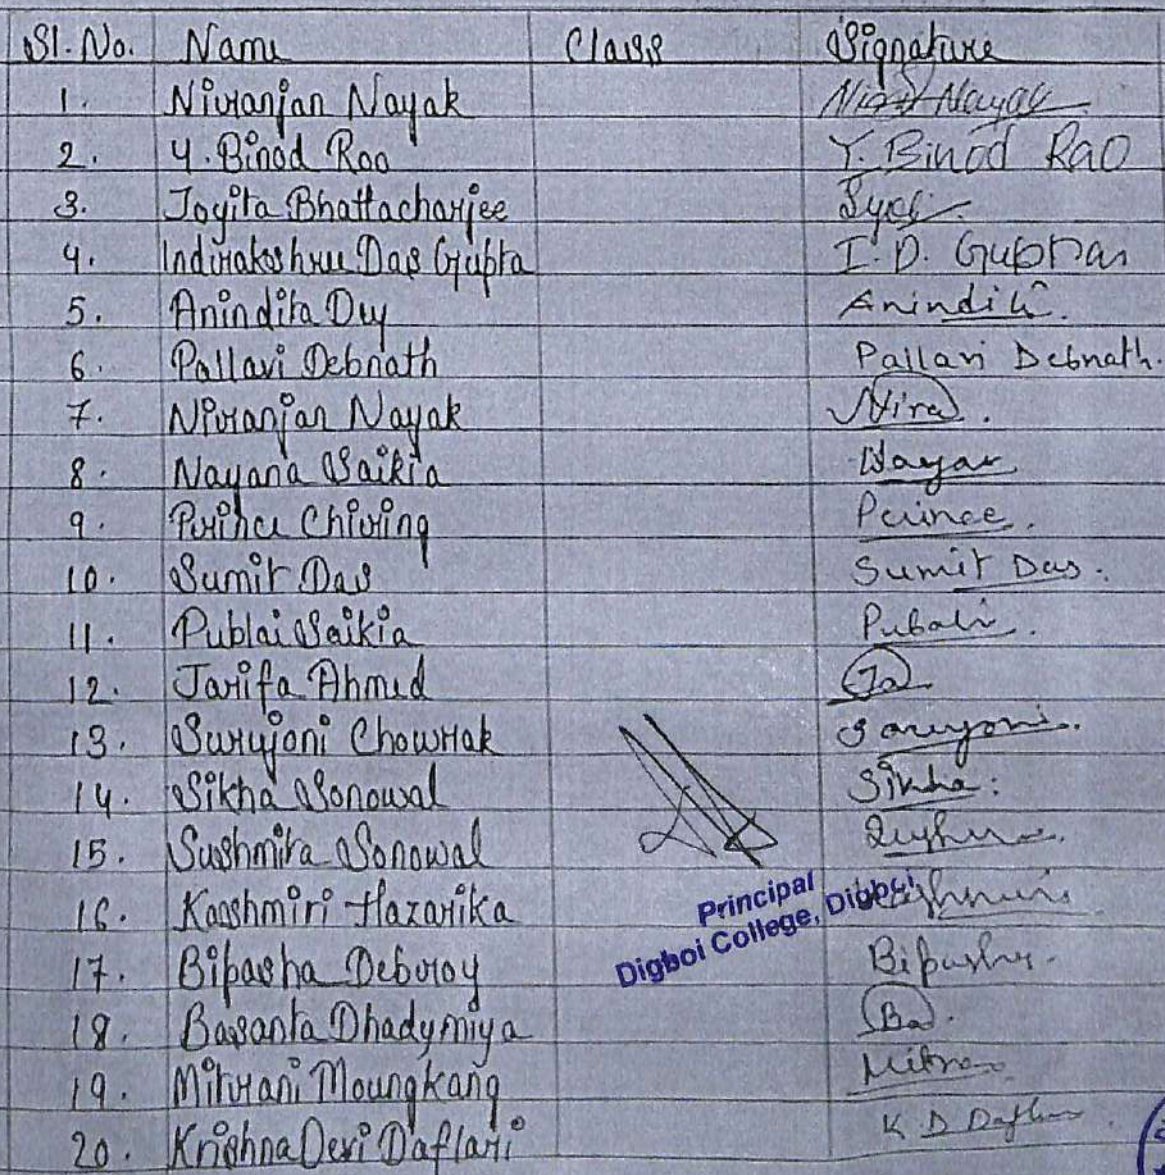 Sl. No. Name Class Signature
1. Niranjan Nayak Nayak
2. Y. Binod Rao Y. Binod Rao
3. Joyita Bhattacharjee
4. Indirakshree Das Gupta I. D. Gupta
5. Anindita Dey Anindita
6. Pallavi Debnath Pallavi Debnath.
7. Niranjan Nayak Nira.
8. Nayana Saikia Nayan
9. Prince Chiring Prince.
10. Sumit Das Sumit Das.
11. Publai Saikia Pubali.
12. Jarifa Ahmed Ja
13. Surujoni Chowrak
14. Sikha Sonowal Sikha:
15. Sushmita Sonowal
16. Kaashmiri Hazarika
Principal
Digboi College, Digboi
17. Bipasha Debroy Bipasha.
18. Basanta Dhadymiya Ba.
19. Mitrani Moungkang Mitra
20. Krishna Devi Daflari K D